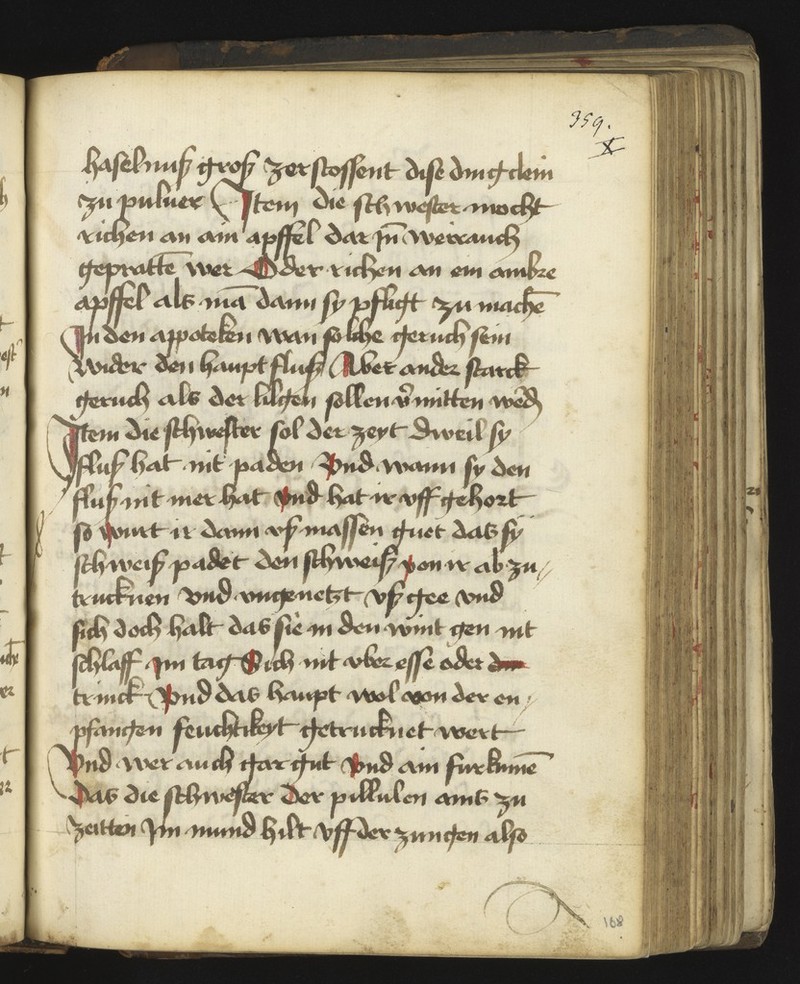 359.
X
haselnuß groß zerstossent dise ding clein
zu puluer Item die schwester mocht
richen an ain apffel dar Jn̄ weirauch
gepratē wer Oder richen an ein ambre
apffel als mā dann sy pfligt zu machē
In den appoteken wan solche geruch sein
wider den hauptfluß Aber ander starck
geruch als der lilgen sollen v̄mitten wēd
Item die schwester sol der zeyt dweil sy
fluß hat nit paden Vnd wann sy den
fluß nit mer hat vnd hat ir vff gehort
so wurt ir dann vß massen guet das sy
schweiß padet den schweiß von ir ab zu//
trucknen vnd vngenetzt vß gee vnd
sich doch halt das sie in den wint gen nit
schlaff im tag Sich nit vber esse oder
trinck Vnd das haupt wol von der en/
pfangen feuchtikeyt getrucknet wert
Vnd wer auch gar gut vnd ain furkumē
das die schwester der pillulen ains zu
zeitten Jm mund hilt vff der zungen also
168